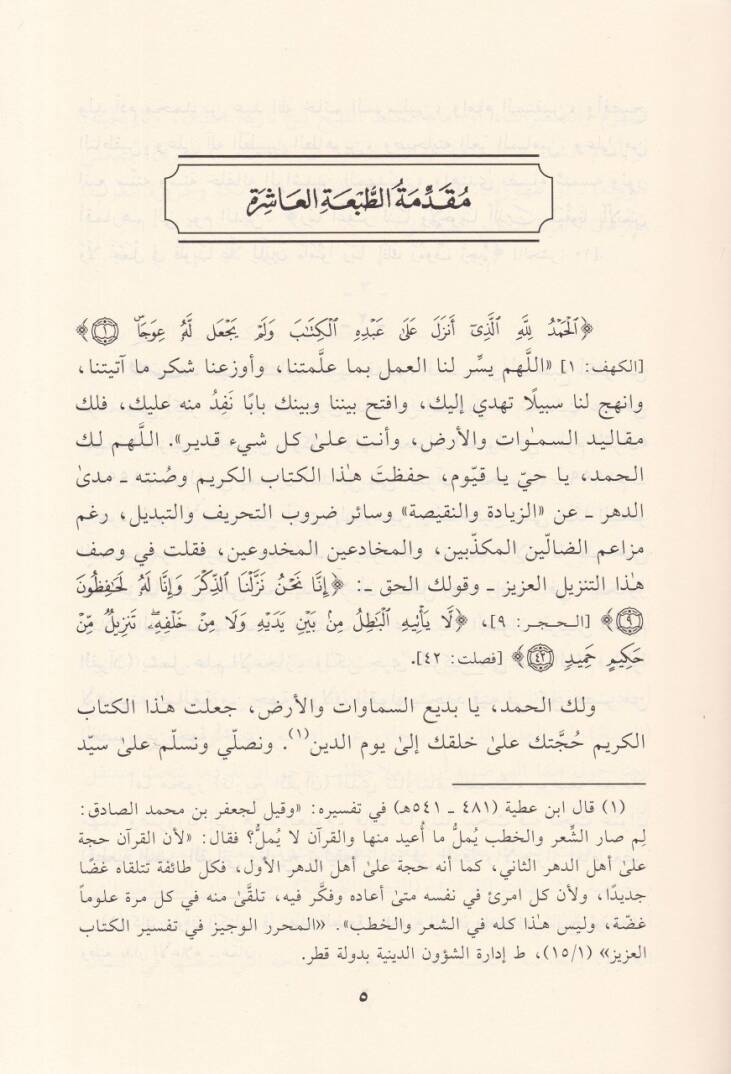 مُقَدِّمَةُ الطَّبْعَةِ العَاشِرَةِ
﴿ٱلْحَمْدُ لِلَّهِ ٱلَّذِىٓ أَنزَلَ عَلَىٰ عَبْدِهِ ٱلْكِتَٰبَ وَلَمْ يَجْعَل لَّهُۥ عِوَجَاۜ ۝١﴾
[الكهف: ١] «اللَّهم يسِّر لنا العمل بما علَّمتنا، وأوزعنا شكر ما آتيتنا،
وانهج لنا سبيلًا تهدي إليك، وافتح بيننا وبينك بابًا نَفِدُ منه عليك، فلك
مقاليد السمٰوات والأرض، وأنت علىٰ كل شيء قدير». اللَّهم لك
الحمد، يا حيّ يا قيّوم، حفظتَ هٰذا الكتاب الكريم وصُنته ـ مدىٰ
الدهر ـ عن «الزيادة والنقيصة» وسائر ضروب التحريف والتبديل، رغم
مزاعم الضالّين المكذّبين، والمخادعين المخدوعين، فقلت في وصف
هٰذا التنزيل العزيز ـ وقولك الحق ـ: ﴿إِنَّا نَحْنُ نَزَّلْنَا ٱلذِّكْرَ وَإِنَّا لَهُۥ لَحَٰفِظُونَ
۝٩﴾ [الحجر: ٩]، ﴿لَّا يَأْتِيهِ ٱلْبَٰطِلُ مِنۢ بَيْنِ يَدَيْهِ وَلَا مِنْ خَلْفِهِۦۖ تَنزِيلٌ مِّنْ
حَكِيمٍ حَمِيدٍ ۝٤٢﴾ [فصلت: ٤٢].
ولك الحمد، يا بديع السماوات والأرض، جعلت هٰذا الكتاب
الكريم حُجَّتك علىٰ خلقك إلىٰ يوم الدين(١). ونصلّي ونسلّم علىٰ سيّد
(١) قال ابن عطية (٤٨١ ـ ٥٤١هـ) في تفسيره: «وقيل لجعفر بن محمد الصادق:
لِم صار الشِّعر والخطب يُملُّ ما أُعيد منها والقرآن لا يُملُّ؟ فقال: «لأن القرآن حجة
علىٰ أهل الدهر الثاني، كما أنه حجة علىٰ أهل الدهر الأول، فكل طائفة تتلقاه غضًّا
جديدًا، ولأن كل امرئ في نفسه متىٰ أعاده وفكَّر فيه، تلقَّىٰ منه في كل مرة علوماً
غضّة، وليس هٰذا كله في الشعر والخطب». «المحرر الوجيز في تفسير الكتاب
العزيز» (١/١٥)، ط إدارة الشؤون الدينية بدولة قطر.
٥